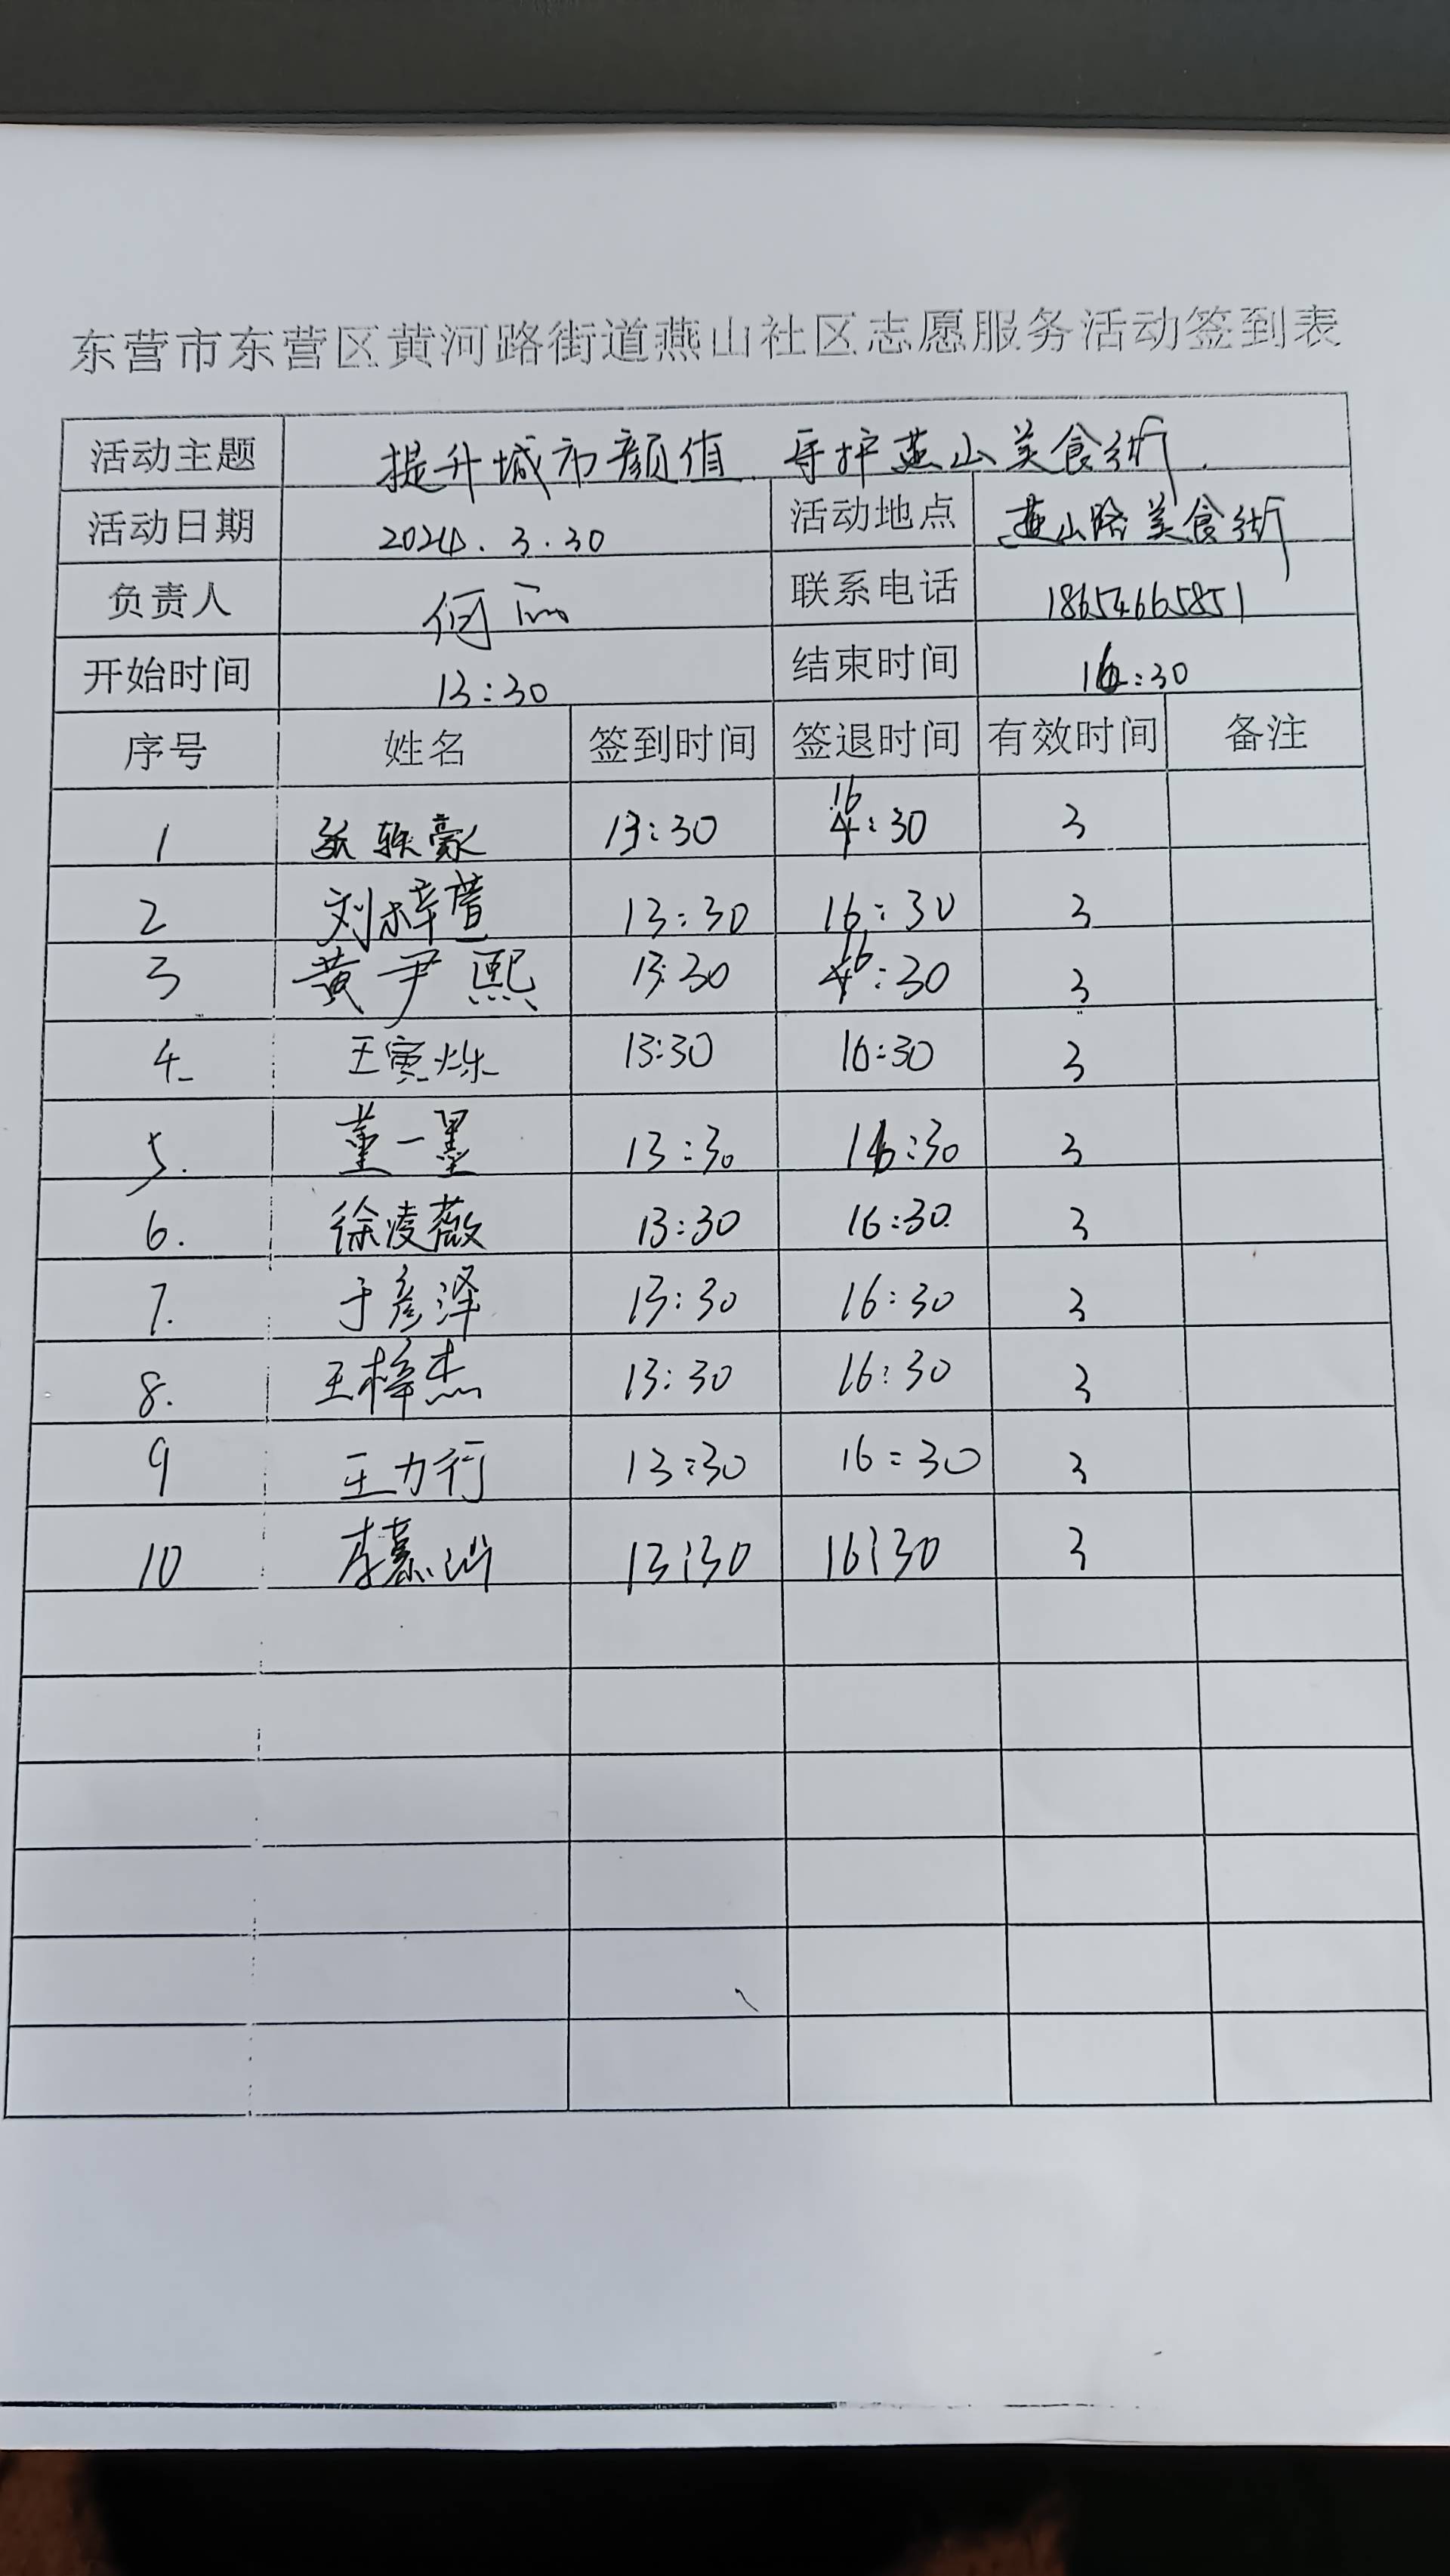 东营市东营区黄河路街道燕山社区志愿服务活动签到表
活动主题 提升城市颜值 守护燕山美食街
活动日期 2024.3.30 活动地点 燕山路美食街
负责人 何丽 联系电话 18654665851
开始时间 13:30 结束时间 16:30
序号 姓名 签到时间 签退时间 有效时间 备注
1 张轶豪 13:30 16:30 3
2 刘梓萱 13:30 16:30 3
3 黄尹熙 13:30 16:30 3
4. 王寅烁 13:30 16:30 3
5. 董一墨 13:30 16:30 3
6. 徐凌薇 13:30 16:30 3
7. 于彦泽 13:30 16:30 3
8. 王梓杰 13:30 16:30 3
9 王力行 13:30 16:30 3
10 李慕 13:30 16:30 3